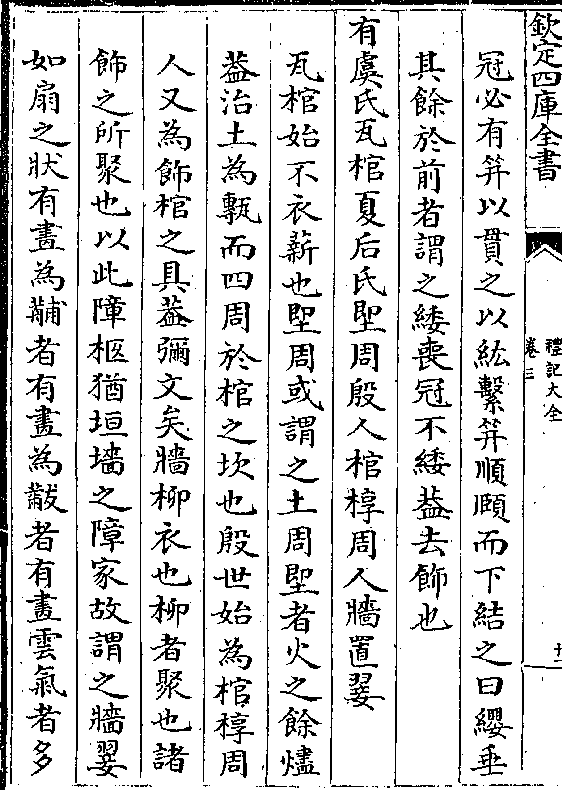 欽定四庫全書
禮記大全
卷三
十一
冠必有笄以貫之以紘繫笄順頤而下結之曰纓垂
其餘於前者謂之緌喪冠不緌葢去飾也
有虞氏瓦棺夏后氏堲周殷人棺椁周人牆置翣
瓦棺始不衣薪也堲周或謂之土周堲者火之餘燼
葢治土為甎而四周於棺之坎也殷世始為棺椁周
人又為飾棺之具葢彌文矣牆柳衣也柳者聚也諸
飾之所聚也以此障柩猶垣墻之障家故謂之牆翣
如扇之狀有畫為黼者有畫為黻者有畫雲氣者多